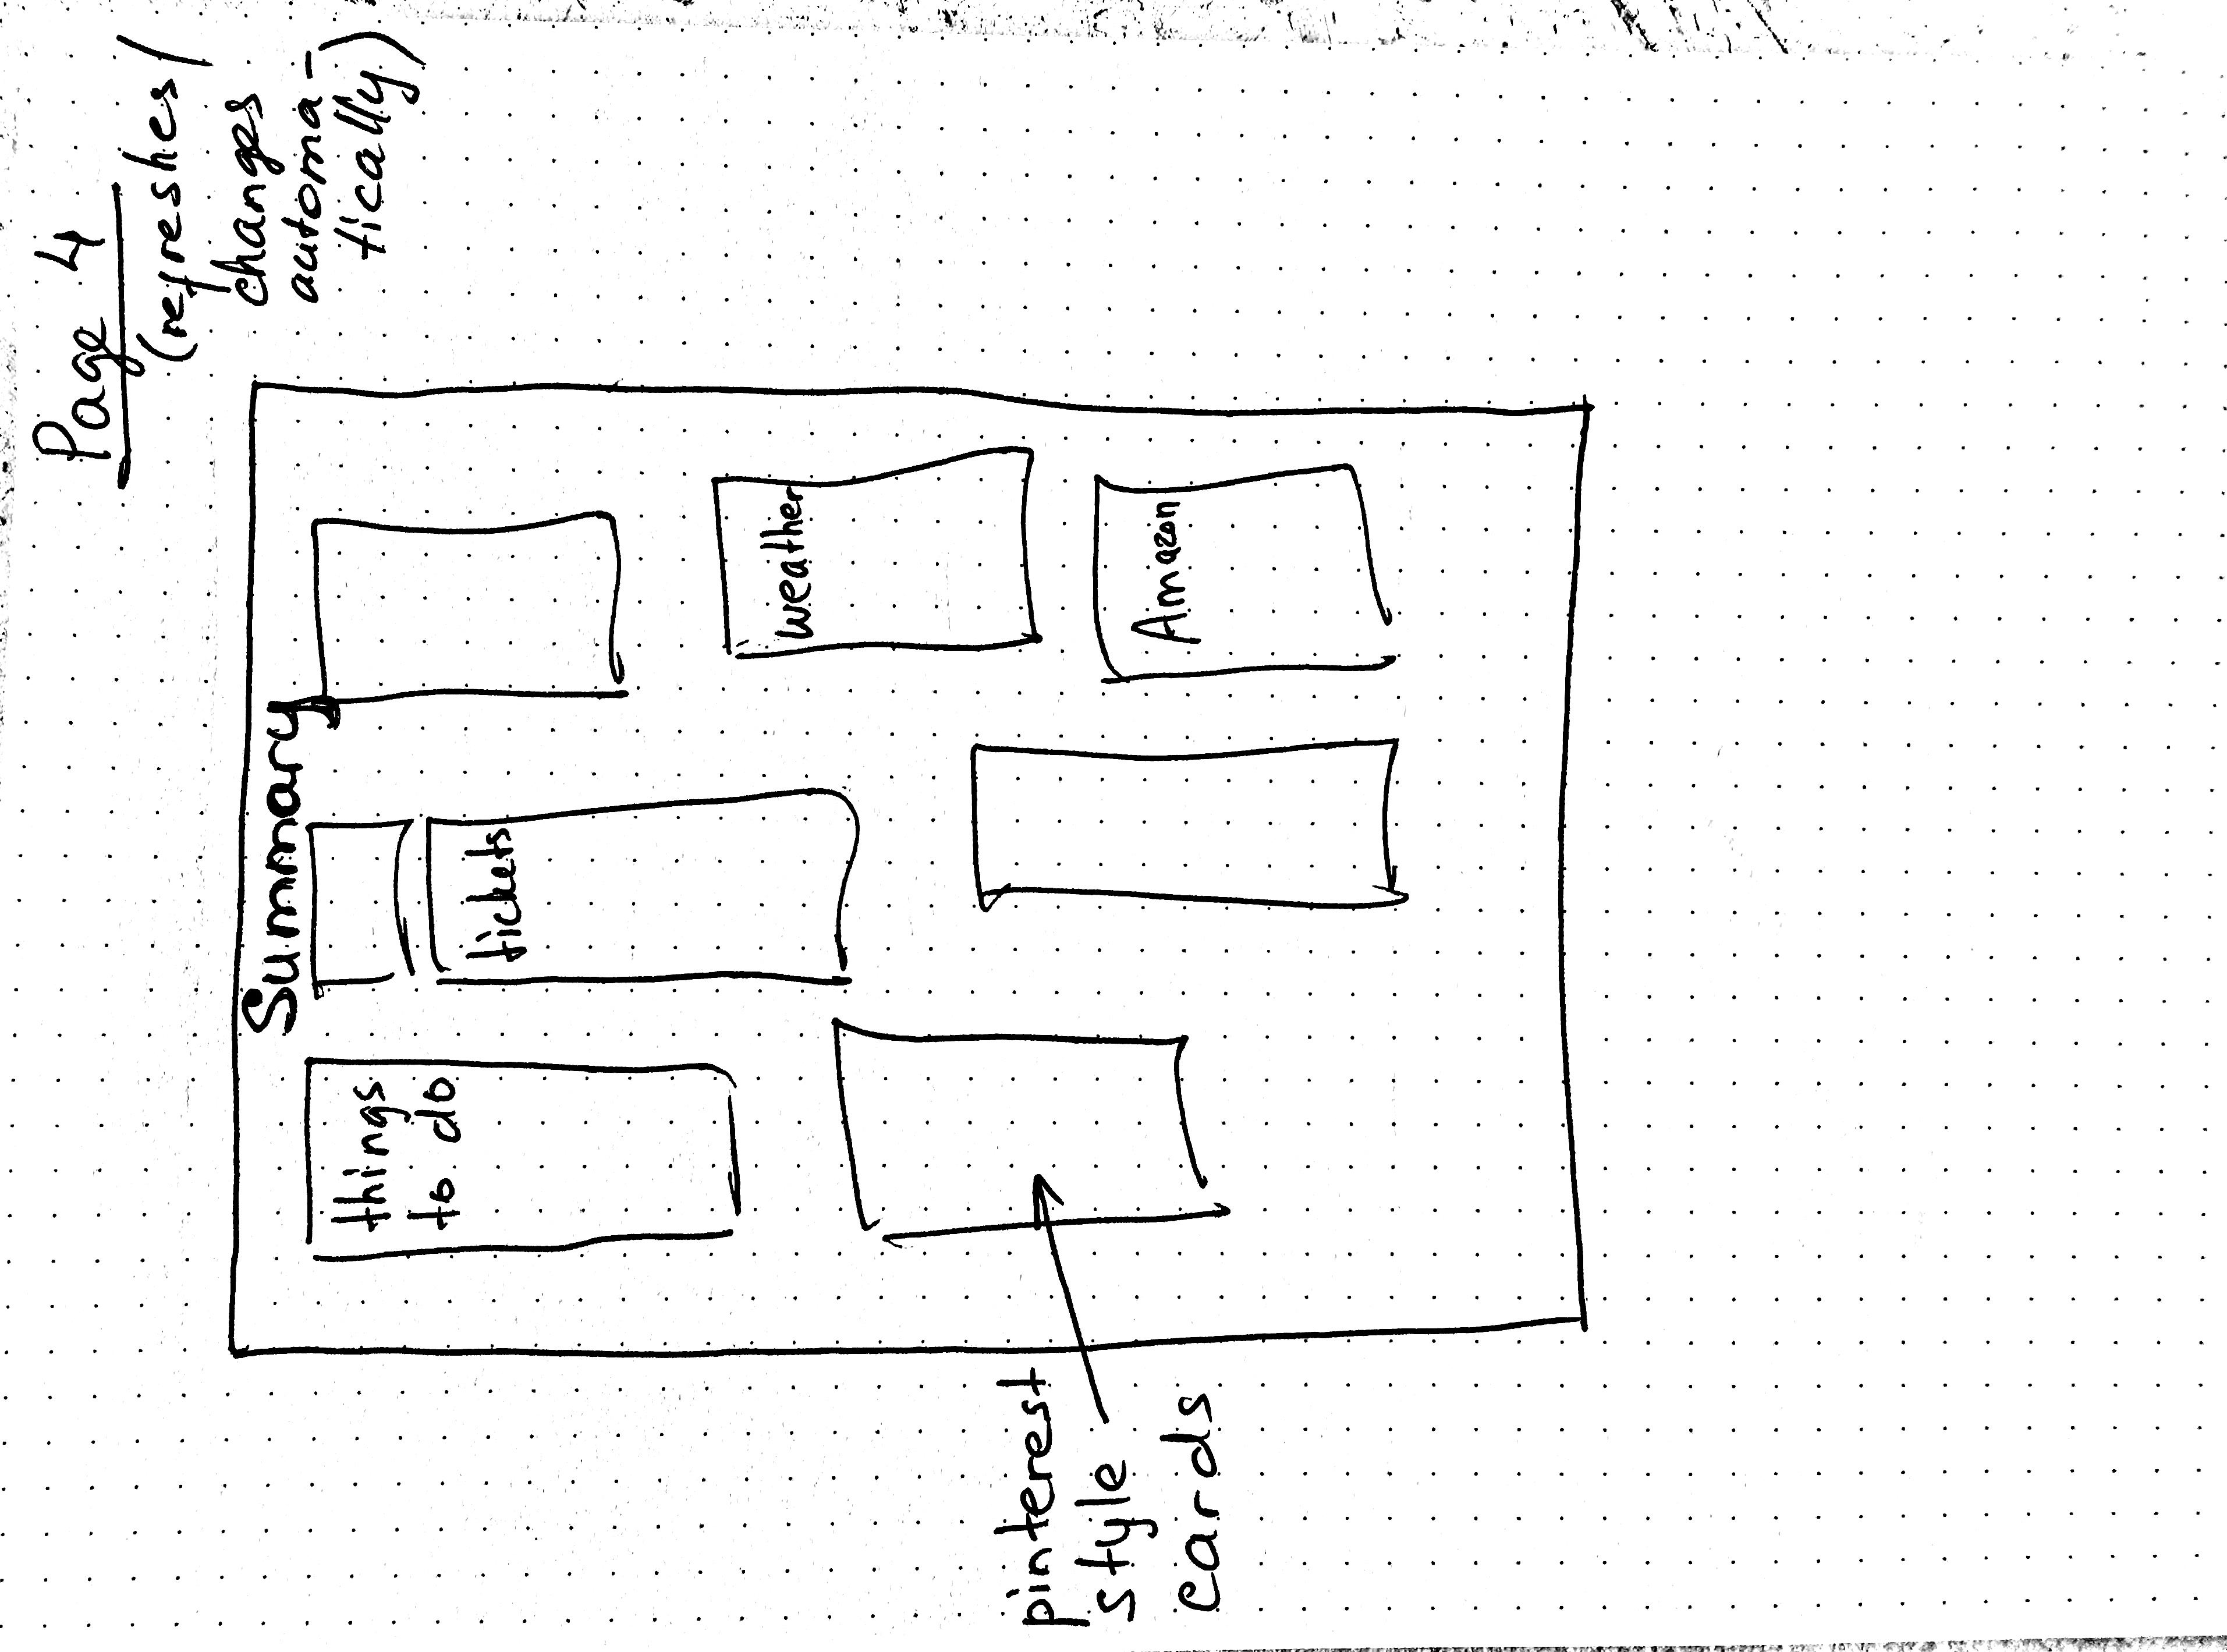 Page 4
(refreshes/
changes
automa-
tically)
Summary
things
to do
tickets
weather
pinterest
style
cards
Amazon